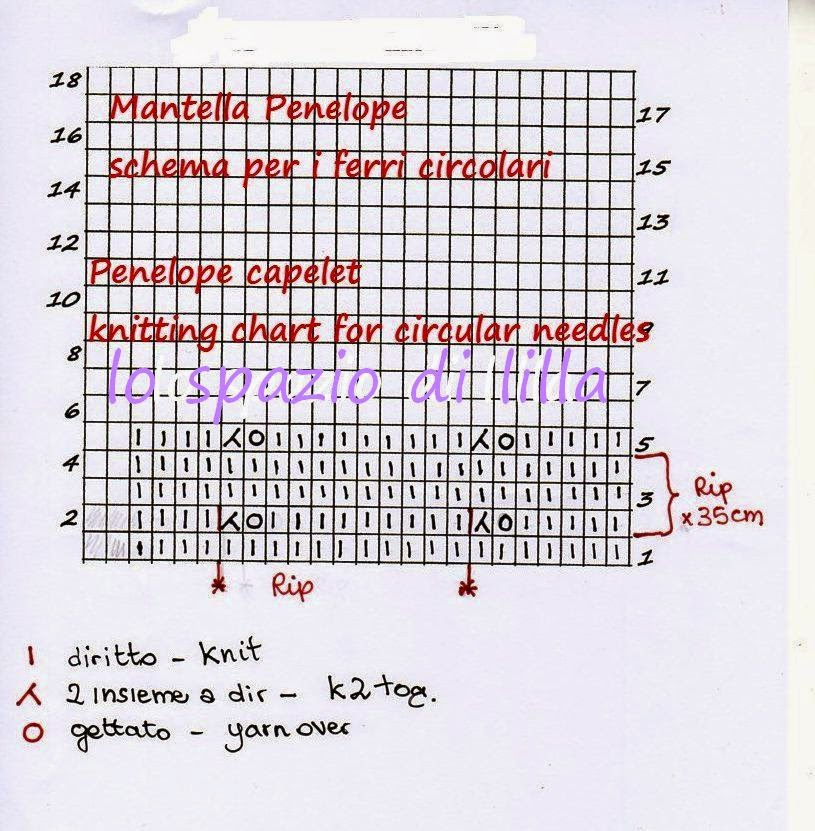 18
Mantella Penelope
17
16
schema per i ferri circolari
15
14
13
12
Penelope capelet
11
10
knitting chart for circular needles
9
8
lo spazio di lilla
7
6
I I I I ⅄ O I I I I I I I I I ⅄ O I I I I I 5
4 I I I I I I I I I I I I I I I I I I I I I I
I I I I I I I I I I I I I I I I I I I I I I 3
Rip
x 35cm
2 I I I I ⅄ O I I I I I I I I I ⅄ O I I I I I
I I I I I I I I I I I I I I I I I I I I I I 1
* Rip *
I diritto - knit
⅄ 2 insieme a dir - k2tog.
O gettato - yarn over